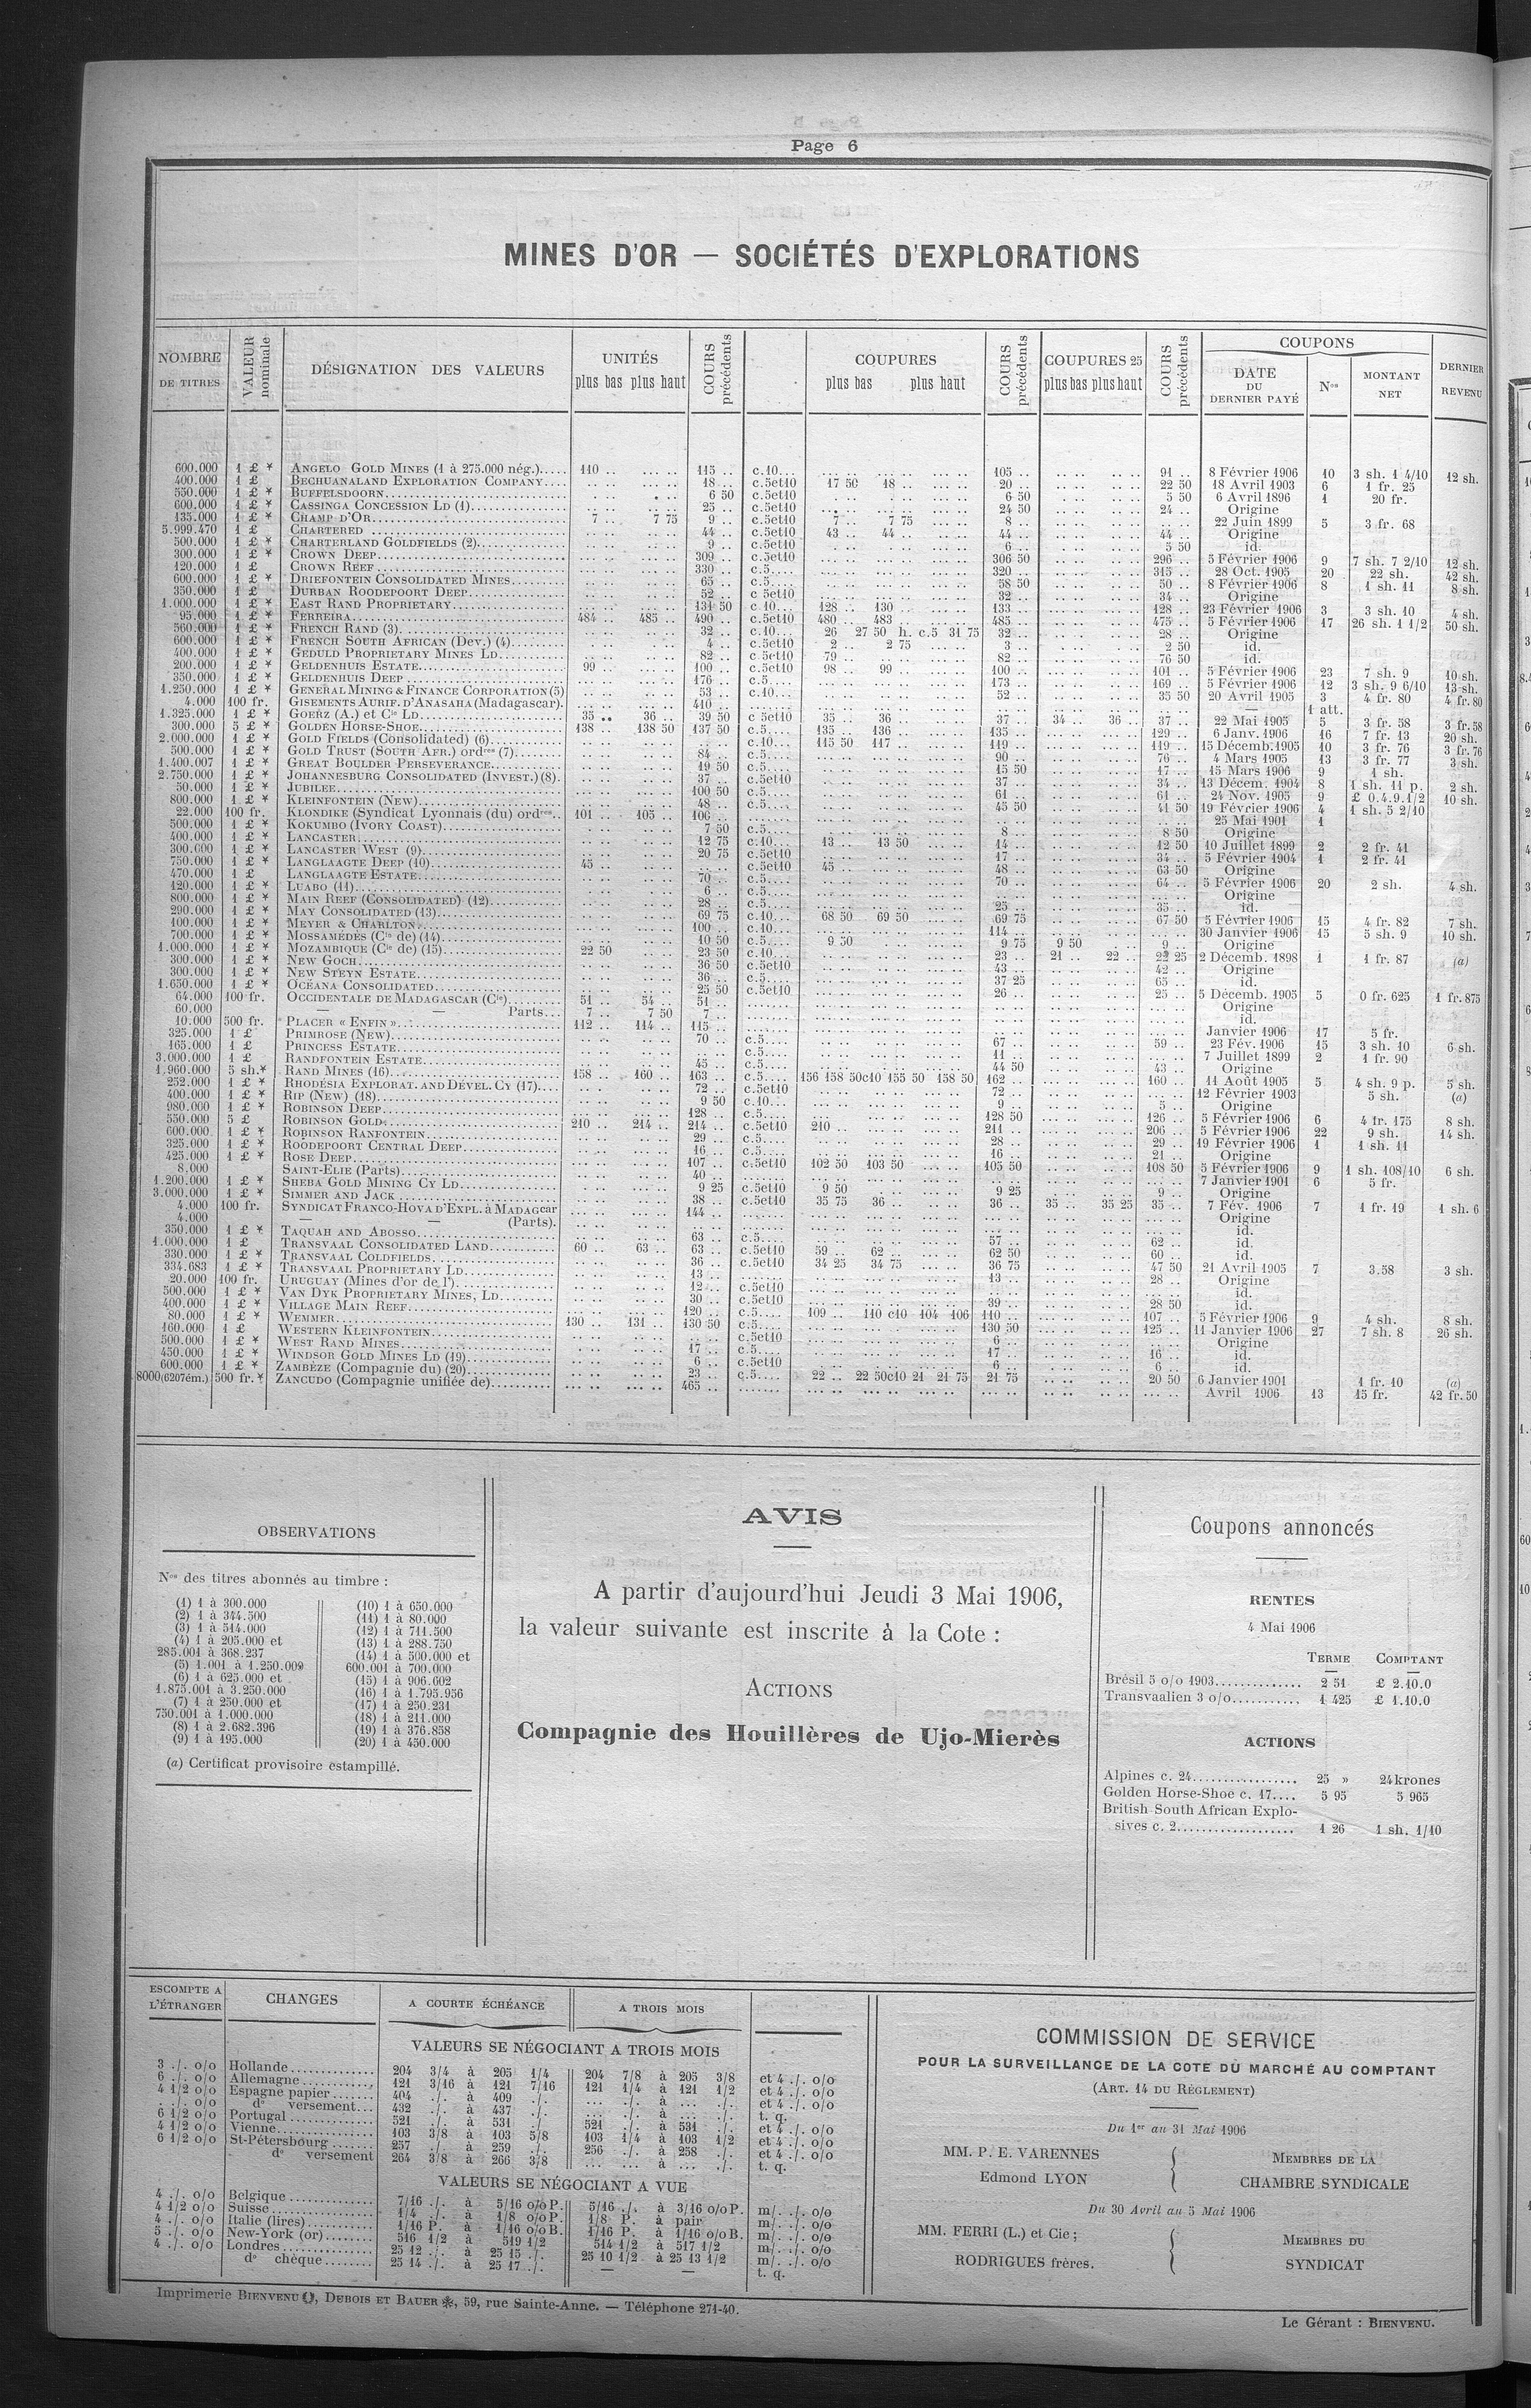 Page 6
MINES D'OR — SOCIÉTÉS D'EXPLORATIONS
NOMBRE DE TITRES
VALEUR nominale
DÉSIGNATION DES VALEURS
UNITÉS
plus bas plus haut
COURS précédents
COUPURES
plus bas plus haut
COURS précédents
COUPURES 25
plus bas plus haut
COURS précédents
COUPONS
DATE DU DERNIER PAYÉ
Nos
MONTANT NET
DERNIER REVENU
600.000 1 £ * ANGELO GOLD MINES (1 à 275.000 nég.)..... 110 .. 115 .. c.10... 105 .. 91 .. 8 Février 1906 10 3 sh. 1 4/10 12 sh.
400.000 1 £ BECHUANALAND EXPLORATION COMPANY.... 18 .. c.5et10 17 50 18 .. 20 .. 22 50 18 Avril 1903 6 1 fr. 25
550.000 1 £ * BUFFELSDOORN 6 50 c.5et10 6 50 5 50 6 Avril 1896 1 20 fr.
600.000 1 £ * CASSINGA CONCESSION LD (1) 25 .. c.5et10 24 50 24 .. Origine
135.000 1 £ * CHAMP D'OR 7 .. 7 75 9 .. c.5et10 7 .. 7 75 8 .. 22 Juin 1899 5 3 fr. 68
5.999.470 1 £ CHARTERED 44 .. c.5et10 43 .. 44 .. 44 .. 44 .. Origine
500.000 1 £ * CHARTERLAND GOLDFIELDS (2) 9 .. c.5et10 6 .. 5 50 id.
300.000 1 £ * CROWN DEEP 309 .. c.5et10 306 50 296 .. 5 Février 1906 9 7 sh. 7 2/10 12 sh.
120.000 1 £ CROWN REEF 330 .. c.5.... 320 .. 315 .. 28 Oct. 1905 20 22 sh. 42 sh.
600.000 1 £ * DRIEFONTEIN CONSOLIDATED MINES 65 .. c.5.... 58 50 50 .. 8 Février 1906 8 1 sh. 11 8 sh.
350.000 1 £ DURBAN ROODEPOORT DEEP 52 .. c 5et10 32 .. 34 .. Origine
1.000.000 1 £ * EAST RAND PROPRIETARY 131 50 c.10... 128 .. 130 133 .. 128 .. 23 Février 1906 3 3 sh. 10 4 sh.
95.000 1 £ * FERREIRA 484 485 .. 490 .. c.5et10 480 .. 483 .. 485 .. 475 .. 5 Février 1906 17 26 sh. 1 1/2 50 sh.
560.000 1 £ * FRENCH RAND (3) 32 .. c.10... 26 27 50 h. c.5 31 75 32 .. 28 .. Origine
600.000 1 £ * FRENCH SOUTH AFRICAN (Dev.) (4) 4 .. c.5et10 2 .. 2 75 3 .. 2 50 id.
400.000 1 £ * GEDULD PROPRIETARY MINES LD 82 .. c 5et10 79 .. 82 .. 76 50 id.
200.000 1 £ * GELDENHUIS ESTATE 99 .. 100 .. c.5et10 98 .. 99 .. 100 .. 101 .. 5 Février 1906 23 7 sh. 9 10 sh.
350.000 1 £ * GELDENHUIS DEEP 176 .. c.5.... 173 .. 169 .. 5 Février 1906 12 3 sh. 9 6/10 13 sh.
1.250.000 1 £ * GENERAL MINING & FINANCE CORPORATION (5) 53 .. c.10... 52 .. 35 50 20 Avril 1905 3 4 fr. 80 4 fr. 80
4.000 100 fr. GISEMENTS AURIF. D'ANASAHA (Madagascar). 410 .. — 1 att.
1.325.000 1 £ * GOERZ (A.) et Cie LD 35 .. 36 .. 39 50 c 5et10 35 .. 36 .. 37 .. 34 .. 36 .. 37 .. 22 Mai 1905 5 3 fr. 58 3 fr. 58
300.000 5 £ * GOLDEN HORSE-SHOE 138 .. 138 50 137 50 c.5.... 135 .. 136 .. 135 .. 129 .. 6 Janv. 1906 16 7 fr. 13 20 sh.
2.000.000 1 £ * GOLD FIELDS (Consolidated) (6) c.10... 115 50 117 .. 119 .. 119 .. 15 Décemb. 1905 10 3 fr. 76 3 fr. 76
500.000 1 £ * GOLD TRUST (SOUTH AFR.) ordres (7) 84 .. c.5.... 90 .. 76 .. 4 Mars 1905 13 3 fr. 77 3 sh.
1.400.007 1 £ * GREAT BOULDER PERSEVERANCE 19 50 c.5.... 15 50 17 .. 15 Mars 1906 9 1 sh.
2.750.000 1 £ * JOHANNESBURG CONSOLIDATED (INVEST.) (8). 37 .. c.5et10 37 .. 34 .. 13 Décem. 1904 8 1 sh. 11 p. 2 sh.
50.000 1 £ * JUBILEE 100 50 c.5.... 61 .. 61 .. 24 Nov. 1905 9 £ 0.4.9.1/2 10 sh.
800.000 1 £ * KLEINFONTEIN (NEW) 48 .. c.5.... 45 50 41 50 19 Février 1906 4 1 sh. 5 2/10
22.000 100 fr. KLONDIKE (Syndicat Lyonnais (du) ordres.. 101 .. 105 .. 106 .. 25 Mai 1901 1
500.000 1 £ * KOKUMBO (IVORY COAST) 7 50 c.5.... 8 .. 8 50 Origine
400.000 1 £ * LANCASTER 12 75 c.10... 13 .. 13 50 14 .. 12 50 10 Juillet 1899 2 2 fr. 41
300.000 1 £ * LANCASTER WEST (9) 20 75 c.5et10 17 .. 34 .. 5 Février 1904 1 2 fr. 41
750.000 1 £ * LANGLAAGTE DEEP (10) 45 .. c.5et10 45 .. 48 .. 63 50 Origine
470.000 1 £ LANGLAAGTE ESTATE 70 .. c.5.... 70 .. 64 .. 5 Février 1906 20 2 sh. 4 sh.
120.000 1 £ * LUABO (11) 6 .. c.5.... Origine
800.000 1 £ * MAIN REEF (CONSOLIDATED) (12) 28 .. c.5.... 25 .. 35 .. id.
290.000 1 £ * MAY CONSOLIDATED (13) 69 75 c.10... 68 50 69 50 69 75 67 50 5 Février 1906 15 4 fr. 82 7 sh.
100.000 1 £ * MEYER & CHARLTON 100 .. c.10... 114 .. 30 Janvier 1906 15 5 sh. 9 10 sh.
700.000 1 £ * MOSSAMÉDÈS (Cie de) (14) 10 50 c.5.... 9 50 9 75 9 50 9 .. Origine
1.000.000 1 £ * MOZAMBIQUE (Cie de) (15) 22 50 23 50 c.10... 23 .. 21 .. 22 .. 22 25 2 Décemb. 1898 1 1 fr. 87 (a)
300.000 1 £ * NEW GOCH 36 50 c.5et10 43 .. 42 .. Origine
300.000 1 £ * NEW STEYN ESTATE 36 .. c.5.... 37 25 65 .. id.
1.650.000 1 £ * OCEANA CONSOLIDATED 25 50 c.5et10 26 .. 25 .. 5 Décemb. 1905 5 0 fr. 625 1 fr. 875
64.000 100 fr. OCCIDENTALE DE MADAGASCAR (Cie) 51 .. 54 .. 51 .. Origine
60.000 — — Parts... 7 .. 7 50 7 .. id.
10.000 500 fr. PLACER « ENFIN » 112 .. 114 .. 115 .. Janvier 1906 17 5 fr.
325.000 1 £ PRIMROSE (NEW) 70 .. c.5.... 67 .. 59 .. 23 Fév. 1906 15 3 sh. 10 6 sh.
165.000 1 £ PRINCESS ESTATE c.5.... 11 .. 7 Juillet 1899 2 1 fr. 90
3.000.000 1 £ RANDFONTEIN ESTATE 45 .. c.5.... 44 50 43 .. Origine
1.960.000 5 sh.* RAND MINES (16) 158 .. 160 .. 163 .. c.5.... 156 158 50c10 155 50 158 50 162 .. 160 .. 11 Août 1905 5 4 sh. 9 p. 5 sh.
252.000 1 £ * RHODÉSIA EXPLORAT. AND DÉVEL. CY (17) 72 .. c.5et10 72 .. 12 Février 1903 5 sh. (a)
400.000 1 £ * RIP (NEW) (18) 9 50 c.10... 9 .. 5 .. Origine
980.000 1 £ * ROBINSON DEEP 128 .. c.5.... 128 50 126 .. 5 Février 1906 6 4 fr. 175 8 sh.
550.000 5 £ ROBINSON GOLD 210 .. 214 .. 214 .. c.5et10 210 .. 211 .. 206 .. 5 Février 1906 22 9 sh. 14 sh.
600.000 1 £ * ROBINSON RANFONTEIN 29 .. c.5.... 28 .. 29 .. 19 Février 1906 1 1 sh. 11
325.000 1 £ * ROODEPOORT CENTRAL DEEP 16 .. c.5.... 16 .. 21 .. Origine
425.000 1 £ * ROSE DEEP 107 .. c.5et10 102 50 103 50 105 50 108 50 5 Février 1906 9 1 sh. 108/10 6 sh.
8.000 SAINT-ELIE (Parts) 40 .. 7 Janvier 1901 6 5 fr.
1.200.000 1 £ * SHEBA GOLD MINING CY LD 9 25 c.5et10 9 50 9 25 9 .. Origine
3.000.000 1 £ * SIMMER AND JACK 38 .. c.5et10 35 75 36 .. 36 .. 35 .. 35 25 35 .. 7 Fév. 1906 7 1 fr. 19 1 sh. 6
4.000 100 fr. SYNDICAT FRANCO-HOVA D'EXPL. à MADAGcar 144 .. Origine
4.000 — — (Parts). id.
350.000 1 £ * TAQUAH AND ABOSSO 63 .. c.5.... 57 .. 62 .. id.
1.000.000 1 £ TRANSVAAL CONSOLIDATED LAND 60 .. 63 .. 63 .. c.5et10 59 .. 62 .. 62 50 60 .. id.
330.000 1 £ * TRANSVAAL COLDFIELDS 36 .. c.5et10 34 25 34 75 36 75 47 50 21 Avril 1905 7 3.58 3 sh.
334.683 1 £ * TRANSVAAL PROPRIETARY LD 13 .. 13 .. 28 .. Origine
20.000 100 fr. URUGUAY (Mines d'or de l') 12 .. c.5et10 id.
500.000 1 £ * VAN DYK PROPRIETARY MINES, LD 30 .. c.5et10 39 .. 28 50 id.
400.000 1 £ * VILLAGE MAIN REEF 120 .. c.5.... 109 .. 110 c10 104 106 110 .. 107 .. 5 Février 1906 9 4 sh. 8 sh.
80.000 1 £ * WEMMER 130 .. 131 .. 130 50 c.5.... 130 50 125 .. 11 Janvier 1906 27 7 sh. 8 26 sh.
160.000 1 £ WESTERN KLEINFONTEIN c.5et10 6 .. Origine
500.000 1 £ * WEST RAND MINES 17 .. c.5.... 17 .. 16 .. id.
450.000 1 £ * WINDSOR GOLD MINES LD (19) 6 .. c.5et10 6 .. 6 .. id.
600.000 1 £ * ZAMBÈZE (Compagnie du) (20) 23 .. c.5.... 22 .. 22 50c10 21 21 75 21 75 20 50 6 Janvier 1901 1 fr. 10 (a)
8000(6207ém.) 500 fr.* ZANCUDO (Compagnie unifiée de) 465 .. Avril 1906 13 15 fr. 42 fr. 50
OBSERVATIONS
Nos des titres abonnés au timbre :
(1) 1 à 300.000
(2) 1 à 344.500
(3) 1 à 514.000
(4) 1 à 205.000 et
285.001 à 368.237
(5) 1.001 à 1.250.009
(6) 1 à 625.000 et
1.875.001 à 3.250.000
(7) 1 à 250.000 et
750.001 à 1.000.000
(8) 1 à 2.682.396
(9) 1 à 195.000
(10) 1 à 650.000
(11) 1 à 80.000
(12) 1 à 711.500
(13) 1 à 288.750
(14) 1 à 500.000 et
600.001 à 700.000
(15) 1 à 906.602
(16) 1 à 1.795.956
(17) 1 à 250.231
(18) 1 à 211.000
(19) 1 à 376.858
(20) 1 à 450.000
(a) Certificat provisoire estampillé.
AVIS
A partir d'aujourd'hui Jeudi 3 Mai 1906,
la valeur suivante est inscrite à la Cote :
ACTIONS
Compagnie des Houillères de Ujo-Mierès
Coupons annoncés
RENTES
4 Mai 1906
TERME COMPTANT
Brésil 5 o/o 1903.............. 2 51 £ 2.10.0
Transvaalien 3 o/o........... 1 425 £ 1.10.0
ACTIONS
Alpines c. 24................. 25 » 24 krones
Golden Horse-Shoe c. 17.... 5 95 5 965
British South African Explo-
sives c. 2................... 1 26 1 sh. 1/10
ESCOMPTE A L'ÉTRANGER
CHANGES
A COURTE ÉCHÉANCE
A TROIS MOIS
VALEURS SE NÉGOCIANT A TROIS MOIS
3 ./. o/o Hollande 204 3/4 à 205 1/4 204 7/8 à 205 3/8 et 4 ./. o/o
6 ./. o/o Allemagne 121 3/16 à 121 7/16 121 1/4 à 121 1/2 et 4 ./. o/o
4 1/2 o/o Espagne papier 404 ./. à 409 ./. ... ./. à ... ./. et 4 ./. o/o
. ./. o/o do versement 432 ./. à 437 ./. ... ./. à ... ./. t. q.
6 1/2 o/o Portugal 521 ./. à 531 ./. 521 ./. à 531 ./. et 4 ./. o/o
4 1/2 o/o Vienne 103 3/8 à 103 5/8 103 1/4 à 103 1/2 et 4 ./. o/o
6 1/2 o/o St-Pétersbourg 257 ./. à 259 ./. 256 ./. à 258 ./. et 4 ./. o/o
do versement 264 3/8 à 266 3/8 ... ... à ... ./. t. q.
VALEURS SE NÉGOCIANT A VUE
4 ./. o/o Belgique 7/16 ./. à 5/16 o/o P. 5/16 ./. à 3/16 o/o P. m/. ./. o/o
4 1/2 o/o Suisse 1/4 ./. à 1/8 o/o P. 1/8 P. à pair m/. ./. o/o
4 ./. o/o Italie (lires) 1/16 P. à 1/16 o/o B. 1/16 P. à 1/16 o/o B. m/. ./. o/o
5 ./. o/o New-York (or) 516 1/2 à 519 1/2 514 1/2 à 517 1/2 m/. ./. o/o
4 ./. o/o Londres 25 12 ./. à 25 15 ./. 25 10 1/2 à 25 13 1/2 m/. ./. o/o
do chèque 25 14 ./. à 25 17 ./. — — t. q.
COMMISSION DE SERVICE
POUR LA SURVEILLANCE DE LA COTE DU MARCHÉ AU COMPTANT
(ART. 14 DU RÈGLEMENT)
Du 1er au 31 Mai 1906
MM. P. E. VARENNES
Edmond LYON
MEMBRES DE LA
CHAMBRE SYNDICALE
Du 30 Avril au 5 Mai 1906
MM. FERRI (L.) et Cie ;
RODRIGUES frères.
MEMBRES DU
SYNDICAT
Imprimerie BIENVENU, DUBOIS ET BAUER, 59, rue Sainte-Anne. — Téléphone 271-40.
Le Gérant : BIENVENU.